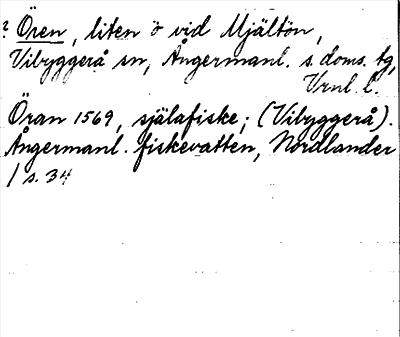 ? Ören, liten ö vid Mjältön,
Vibyggerå sn, Ångermanl. s. doms. tg,
Vrnl. l.
Öran 1569, själafiske; (Vibyggerå).
Ångermanl. fiskevatten, Nordlander
/ s. 34